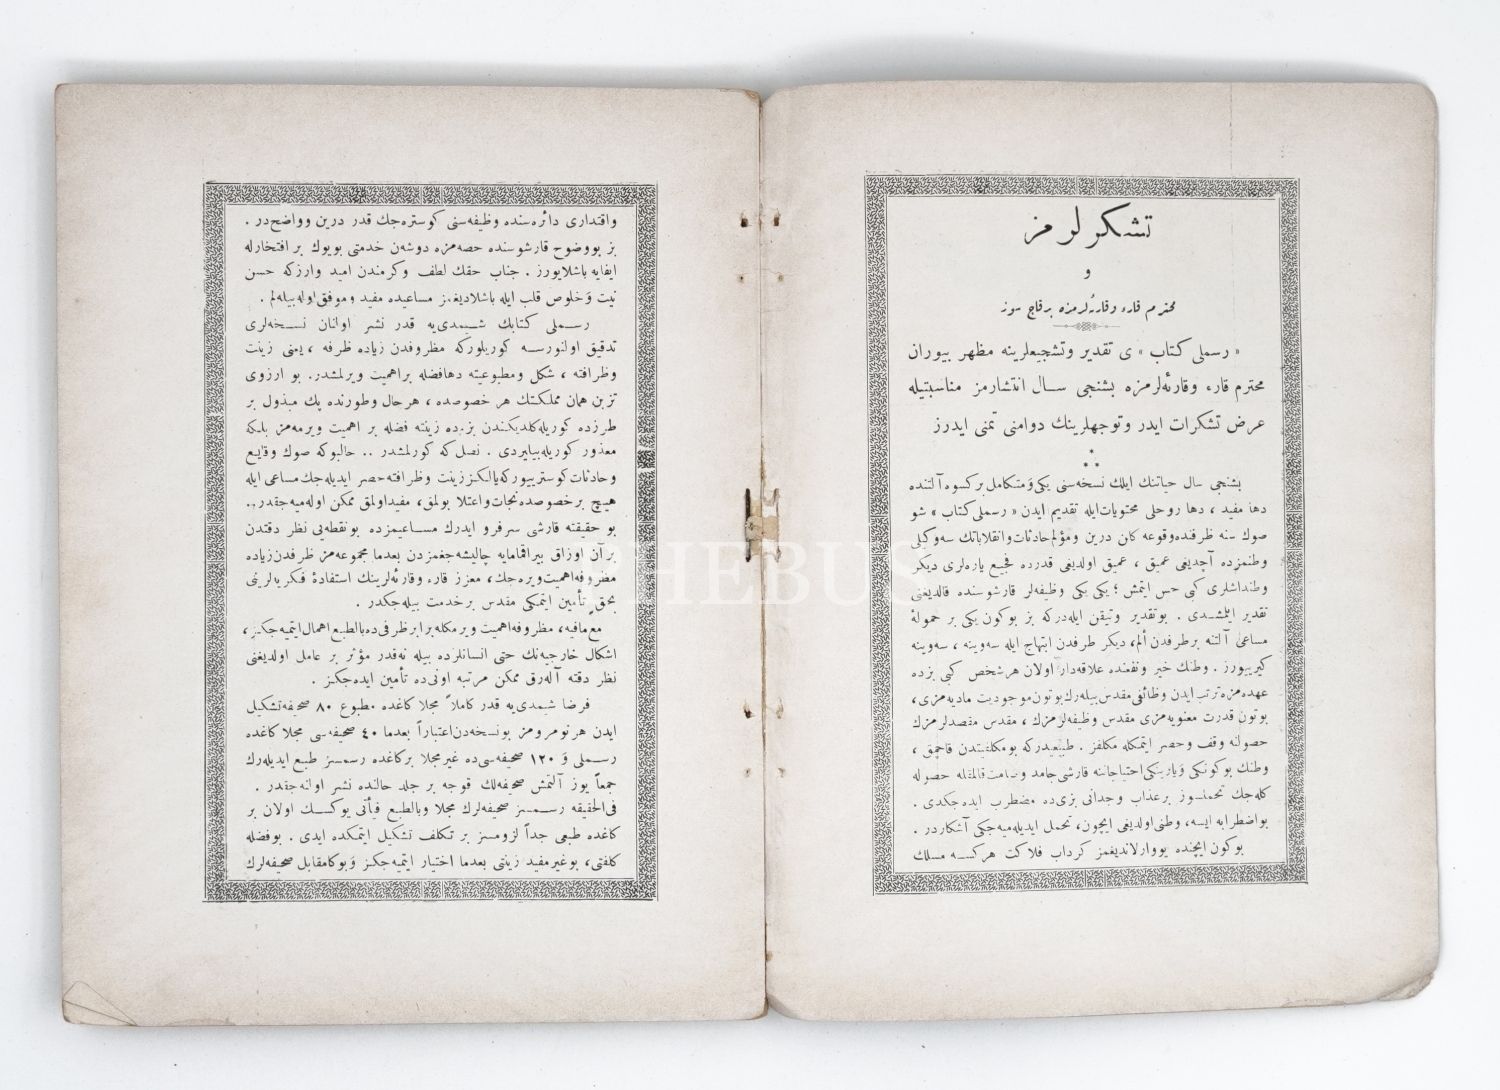 تشكرلرمز
و
محترم قارء وقارئه‌لرمزه برقاچ سوز
« رسملی كتاب » ی تقدیر وتشجیعلرینه مظهر بیوران
محترم قارء وقارئه‌لرمزه بشنجی سـال انتشارمز مناسبتیله
عرض تشكرات ایدر وتوجهلرینك دوامنی تمنی ایدرز
*
* *
بشنجی سال حیاتنك ایلك نسخه‌سنی یكی و متكامل بركسوه آلتنده
دها مفید ، دها روحلی محتویات‌ایله تقدیم ایدن « رسملی كتاب » شو
صوك سنه ظرفنده‌وقوعه كلن درین ومؤلم‌حادثات‌وانقلاباتك سه‌وكیلی
وطنمزده آچدیغی عمیق ، عمیق اولدیغی قدرده فجیع یاره‌لری دیكر
وطنداشلری كبی حس ایتمش ؛ یكی یكی وظیفه‌لر قارشوسنده قالدیغنی
تقدیر ایلمشـدی . بوتقدیر وتیقن ایله‌دركه بز بوكون یكی بر حمولهٔ
مساعی آلتنه برطرفدن ألم، دیكر طرفدن ابتهاج ایله سه‌وینه ، سه‌وینه
كیریبورز . وطنك خیر ونفعنده علاقه‌دار اولان هرشخص كبی بزده
عهده‌مزه‌ترتب ایدن وظائفی مقدس بیله‌رك‌بوتون‌موجودیت مادیه‌مزی،
بوتون قدرت معنویه‌مزی مقدس وظیفه‌لرمزك ، مقدس مقصدلرمزك
حصولنه وقف وحصر ایتمكله مكلفز . طبیعیدركه بومكلفیتدن قاچمق ،
وطنك بوكونكی و یارینكی‌احتیاجاتنه قارشی‌جامد وصامت‌قالمقله حصوله
كله‌جك تحمسوز برعذاب وجدانی بزی‌ده مضطرب ایده‌جكدی .
بواضطرابه ایسه، وطنی اولدیغی ایچون، تحمل ایدیله‌میه‌جكی آشكاردر .
بوكون ایچنده یووارلاندیغمز كرداب فلاكت هركسه مسلك
واقتداری دائره‌سنده وظیفه‌سنی كوستره‌جك قدر درین وواضح‌در .
بز بووضوح قارشوسنده حصه‌مزه دوشه‌ن خدمتی بویوك بر افتخارله
ایفایه باشلایورز . جناب حقك لطف وكرمندن امید وارزكه حسن
نیت وخلوص قلب ایله باشلادیغمز مساعیده مفید وموفق‌اوله‌بیله‌لم .
رسـملی كتابك شـیمدی‌یه قدر نشر اولنان نسـخه‌لری
تدقیق اولنورسـه كوریلوركه مظروفدن زیاده ظرفه ، یعنی زینت
وظرافته ، شكل ومطبوعیته دهافضله براهمیت ویرلمشدر. بو ارزوی
تزین همان مملكتك هر خصوصده ، هرحال وطورنده پك مبذول بر
طرزده كوریله‌كلدیكندن بزده زینته فضله بر اهمیت ویرمه‌مز بلكه
معذور كوریله‌بیلیردی . نصل‌كه كورلمشدر .. حالبوكه صوك وقایع
وحادثات‌كوستریبوركه‌یالكز زینت وظرافته‌حصر ایدیله‌جك‌مساعی ایله
هیچ برخصوصده‌نجات‌واعتلا بولمق، مفیداولمق ممكن اوله‌میه‌جقدر..
بو حقیقته قارشی سرفرو ایدرك مسـاعیمزده بونقطه‌یی نظر دقتدن
بران اوزاق بیراقمامایه چالیشه‌جغمزدن بعدما مجموعه‌مز ظرفدن‌زیاده
مظروفه‌اهمیت‌ویره‌جك، معزز قارء وقارئه‌لرینك استفادهٔ فكریه‌لرینی
بحق تأمین ایتمكی مقدس برخدمت بیله‌جكدر .
مع مافیه، مظروفه‌اهمیت ویرمكله‌برابر ظرفی‌ده‌بالطبع‌اهمال‌ایتمیه‌جكز،
اشكال خارجیه‌نك حتی انسانلرده بیله نه‌قدر مؤثر بر عامل اولدیغنی
نظر دقته آله‌رق ممكن مرتبه اونی‌ده تأمین ایده‌جكز .
فرضا شیمدی‌یه قدر كاملاً مجلا كاغده مطبوع ٨٠ صحیفه‌تشكیل
ایدن هرنومرومز بونسخه‌دن‌اعتباراً بعدما ٤٠ صحیفه‌سی مجلا كاغده
رسـملی و ١٢٠ صحیفه‌سی‌ده غیرمجلا بركاغده رسمسز طبع ایدیله‌رك
جمعاً یوز آلتمش صحیفه‌لك قوجه بر جلد حالنده نشر اولنه‌جقدر .
فی‌الحقیقه رسـمسز صحیفه‌لرك مجلا وبالطبع فیأتی یوكسـك اولان بر
كاغده طبعی جداً لزومسز بر تكلف تشكیل ایتمكده ایدی . بوفضله
كلفتی، بوغیرمفید زینتی بعدما اختیار ایتمیه‌جكز وبوكامقابل صحیفه‌لرك
PHEBUS